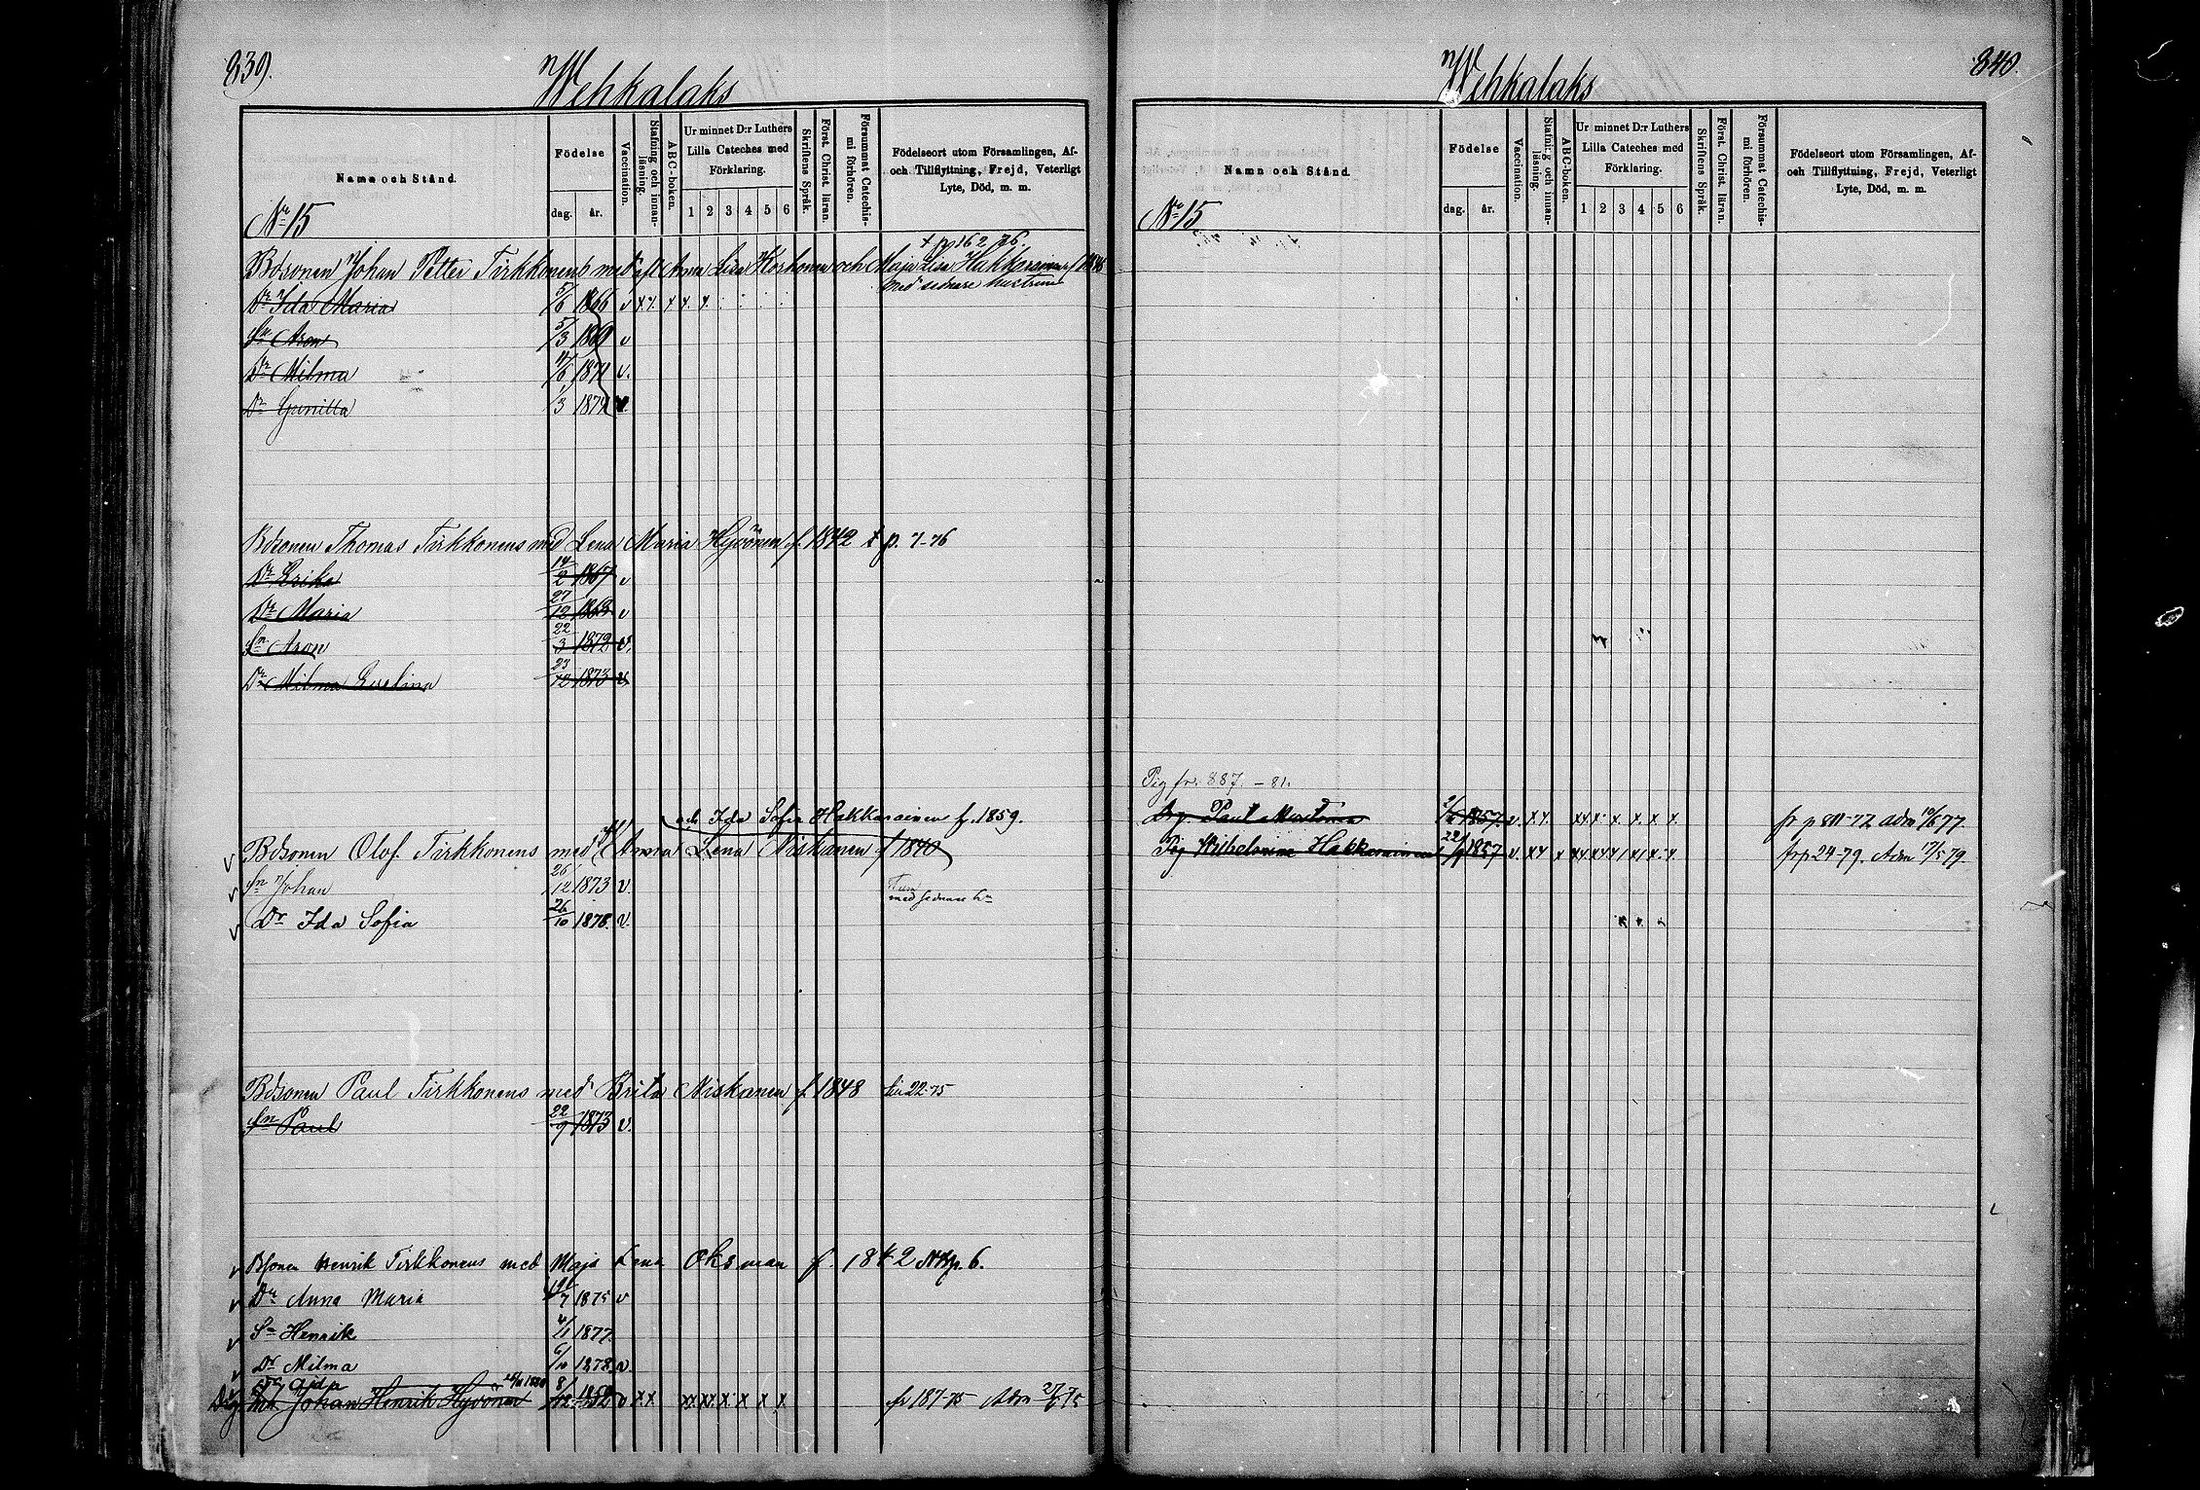 839.
Wehkalaks
Namn och Stånd.
Födelse
dag.
år.
Vaccination.
Stafning och innanläsning.
ABC-boken.
Ur minnet D:r Luthers
Lilla Cateches med
Förklaring.
1 2 3 4 5 6
Skriftens Språk.
Först. Christ. läran.
Försummat Catechismi förhören.
Födelseort utom Församlingen, Af-
och Tillflyttning, Frejd, Veterligt
Lyte, Död, m. m.
No 15
Bdsonen Johan Petter Tirkkonens med Anna Lisa Korhonen och Maja Lisa Hakkarainen
med sednare hustrun
Dr Ida Maria 5/6 1866 v x x x x x
Sn Aron 5/3 1869 v
Dr Milma 17/6 1871 v.
Dr Gunilla 1/3 1874 v.
Bdsonen Thomas Tirkkonens med Lena Maria Hyvönen f. 1842 t p. 7-76
Dr Erika 14/2 1867 v
Dr Maria 27/12 1868 v
Sn Aron 22/3 1872 v.
Dr Milma Evelina 23/12 1873 v
och Ida Sofia Hakkarainen f. 1859.
Bdsonen Olof Tirkkonens med (Anna Lena Niskanen f 1840)
Sn Johan 26/12 1873 v.
med sednare h
Dr Ida Sofia 26/10 1878. v.
Bdsonen Paul Tirkkonens med Brita Niskanen f. 1848 22-75
Sn Paul 22/9 1873 v.
Bdsonen Henrik Tirkkonens med Maja Lena Oksman f. 1842 p. 6.
Dr Anna Maria 1875 v
Sn Henrik 1877
Dr Milma 6/10 1878 v.
Aida
Drg Johan Henrik Hyvönen 8/12 1852 v x x x x x x x x x fr 187-75
840.
Wehkalaks
Namn och Stånd.
Födelse
dag.
år.
Vaccination.
Stafning och innanläsning.
ABC-boken.
Ur minnet D:r Luthers
Lilla Cateches med
Förklaring.
1 2 3 4 5 6
Skriftens Språk.
Först. Christ. läran.
Försummat Catechismi förhören.
Födelseort utom Församlingen, Af-
och Tillflyttning, Frejd, Veterligt
Lyte, Död, m. m.
No 15
Pig fr. 887. - 81.
Drg Paul 1857 v. x x x x x x x x x fr p 811-77 adm 10/6 77.
Pig Wilhelmina Hakkarainen 22/9 1857 v. x x x x x x x x x x fr p 24-79. Adm 17/5 79